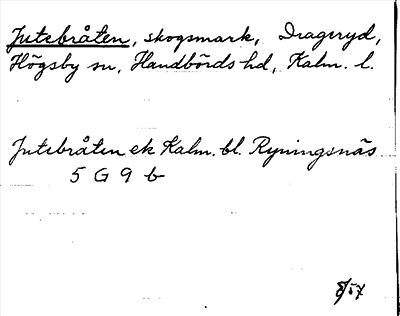 Jutebråten, skogsmark, Drageryd,
Högsby sn, Handbörds hd, Kalm. l.
Jutebråten ek Kalm. bl. Ryningsnäs
5 G 9 b